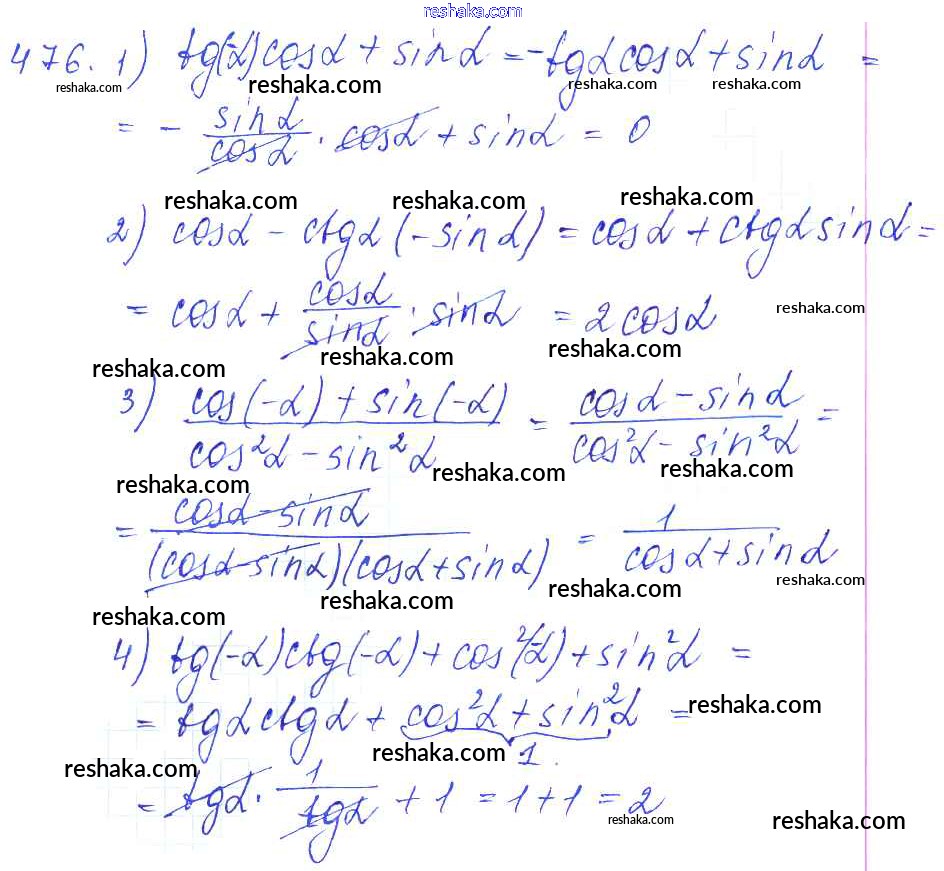 reshaka.com
476. 1) tg(-α)cosα + sinα = -tgα cosα + sinα =
reshaka.com reshaka.com reshaka.com reshaka.com
= - sinα/cosα · cosα + sinα = 0
reshaka.com reshaka.com reshaka.com
2) cosα - ctgα(-sinα) = cosα + ctgα sinα =
= cosα + cosα/sinα · sinα = 2cosα
reshaka.com
reshaka.com reshaka.com reshaka.com
3) cos(-α) + sin(-α)/cos²α - sin²α = cosα - sinα/cos²α - sin²α =
reshaka.com reshaka.com reshaka.com
= cosα - sinα/(cosα - sinα)(cosα + sinα) = 1/cosα + sinα
reshaka.com reshaka.com reshaka.com reshaka.com
4) tg(-α)ctg(-α) + cos²(-α) + sin²α =
= tgα ctgα + cos²α + sin²α =
reshaka.com
1.
reshaka.com reshaka.com
= tgα · 1/tgα + 1 = 1 + 1 = 2
reshaka.com reshaka.com